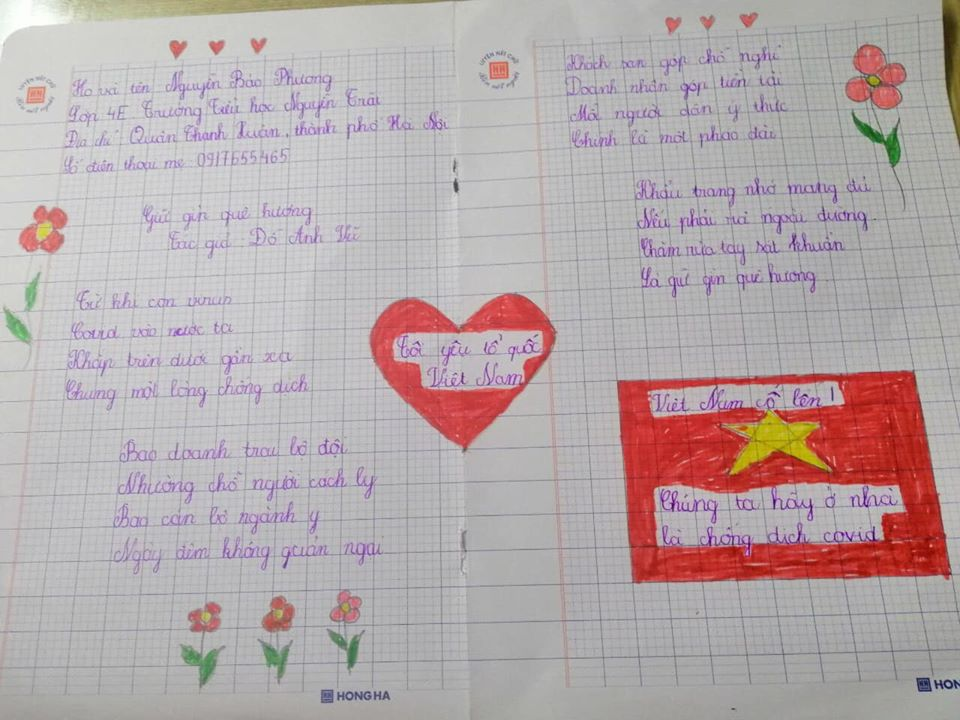 Họ và tên Nguyễn Bảo Phương
Lớp 4E Trường Tiểu học Nguyễn Trãi
Địa chỉ: Quận Thanh Xuân, thành phố Hà Nội
Số điện thoại mẹ 0917655465
Giữ gìn quê hương
Tác giả Đỗ Anh Vũ
Từ khi con virus
Covid vào nước ta
Khắp trên dưới gần xa
Chung một lòng chống dịch
Bao doanh trại bộ đội
Nhường chỗ người cách ly
Bao cán bộ ngành y
Ngày đêm không quản ngại
HONG HA
Tôi yêu tổ quốc
Việt Nam
Khách sạn góp chỗ nghỉ
Doanh nhân góp tiền tài
Mỗi người dân ý thức
Chính là một pháo đài
Khẩu trang nhớ mang đủ
Nếu phải ra ngoài đường
Chăm rửa tay sát khuẩn
Là giữ gìn quê hương
Việt Nam cố lên!
Chúng ta hãy ở nhà
là chống dịch covid
HONG HA